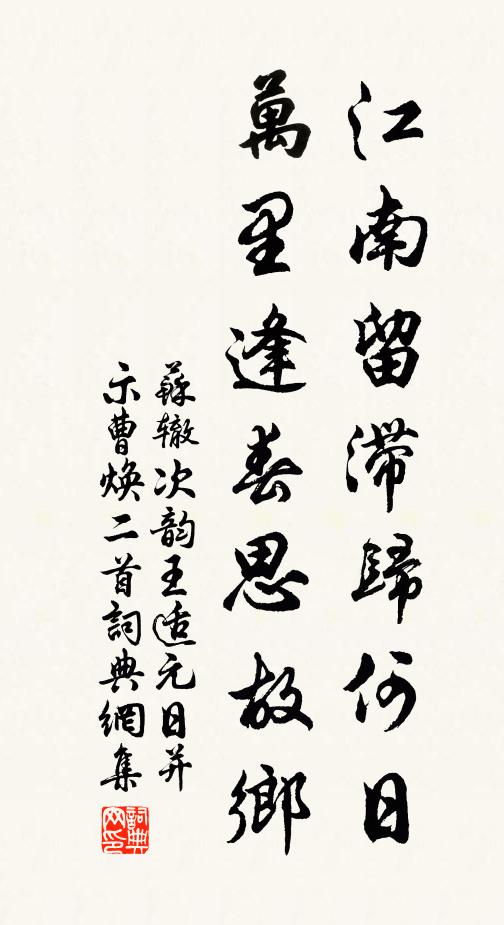 江南留滯歸何日
萬里逢春思故鄉
蘇轍次韵王适元日并
示曹煥二首詞典網集
詞典
网印